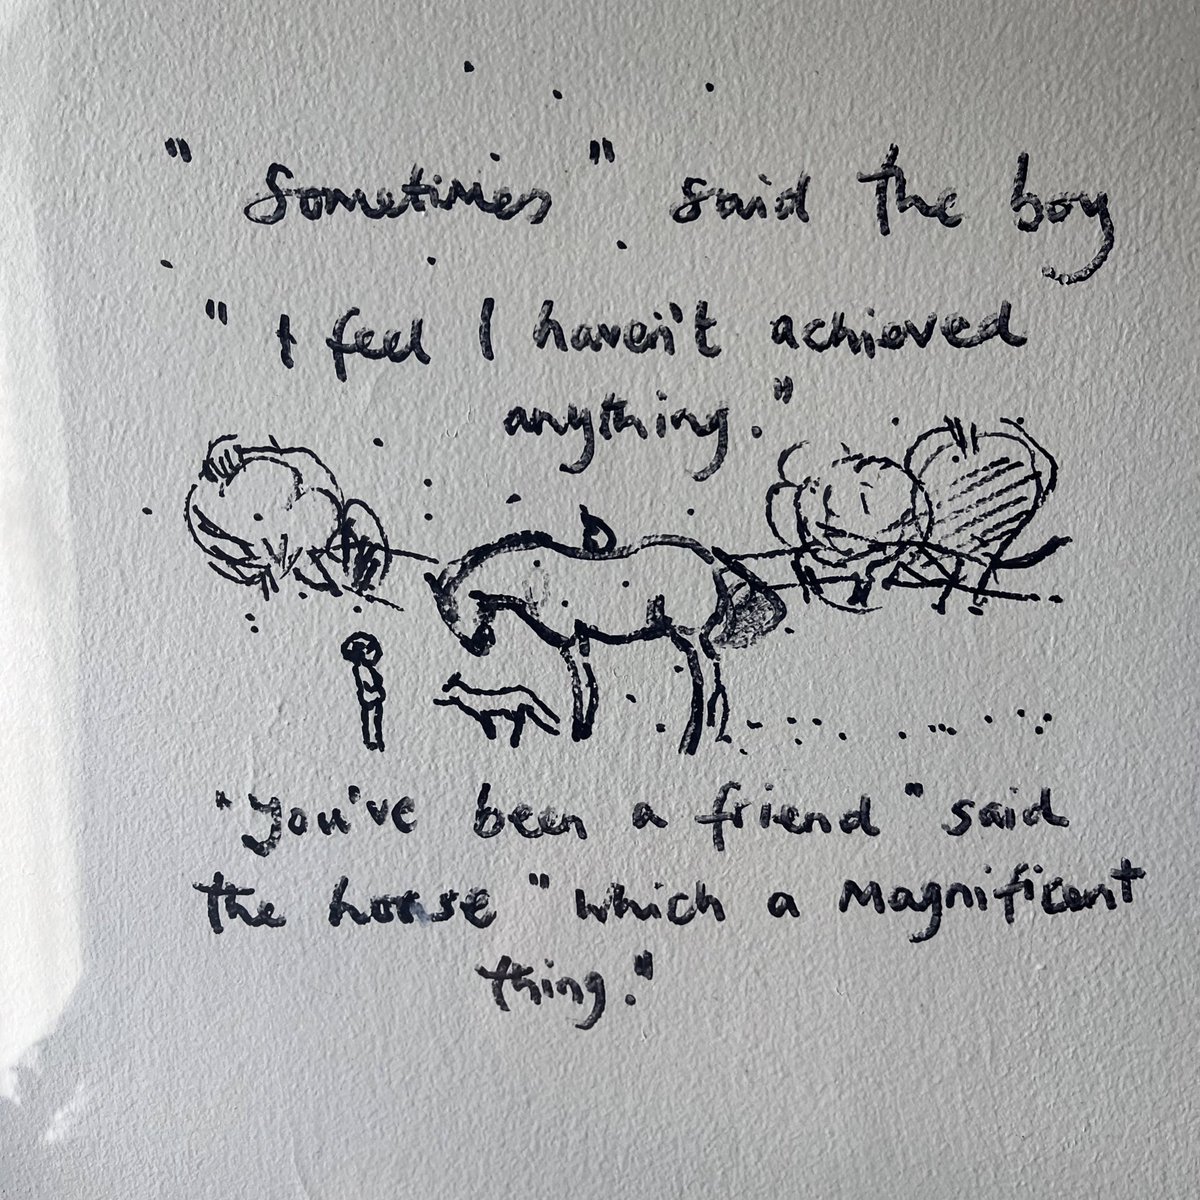 "Sometimes" said the boy
"I feel I haven't achieved
anything."
"You've been a friend" said
the horse "which a magnificent
thing."